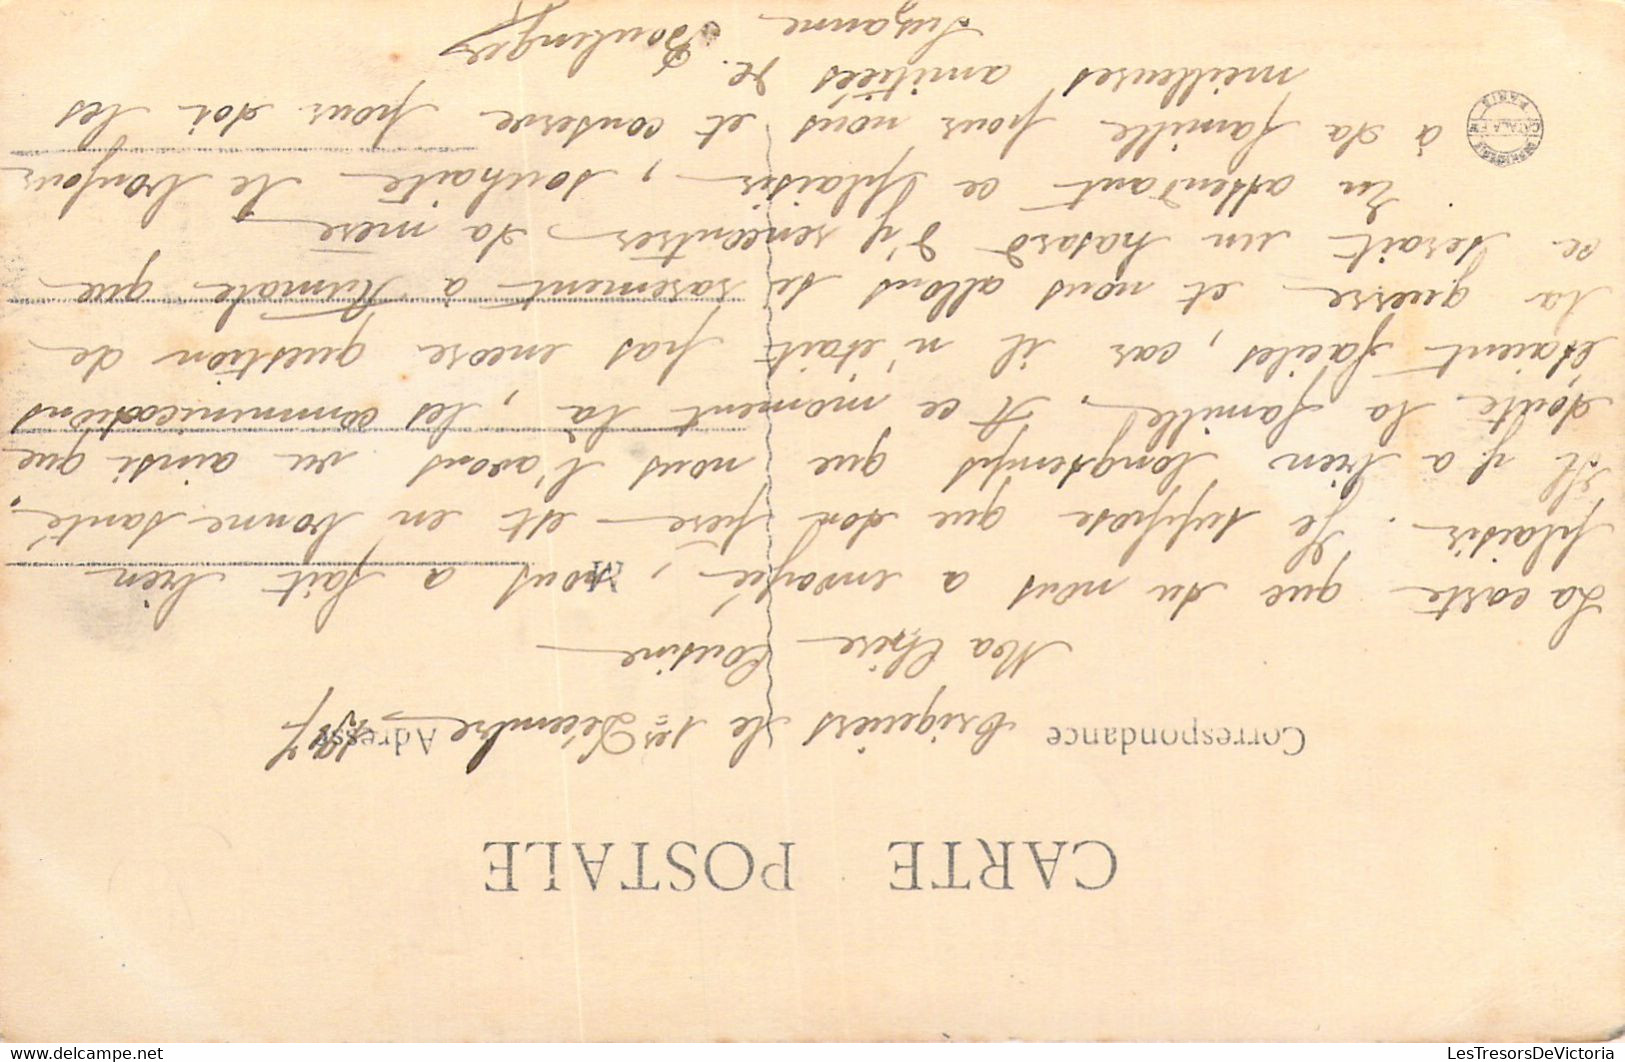 CARTE POSTALE
Correspondance
Adresse
Origniers le 1er Décembre 1917
Ma Chère Cousine
La carte que tu nous a envoyée, nous a fait bien
plaisir. Je suppose que ton père est en bonne santé.
Il y a bien longtemps que nous l'avons vu ainsi que
toute ta famille. A ce moment là, les communications
étaient faciles, car il n'était pas encore question de
la guerre et nous allons si rarement à Aumale que
ce serait un hasard d'y rencontrer ta mère
En attendant ce plaisir, souhaite le bonjour
à ta famille pour nous et conserve pour toi les
meilleures amitiés de
Suzanne Boulenger
M
IMPRIMERIE
CATALA FR
PARIS
LesTresorsDeVictoria